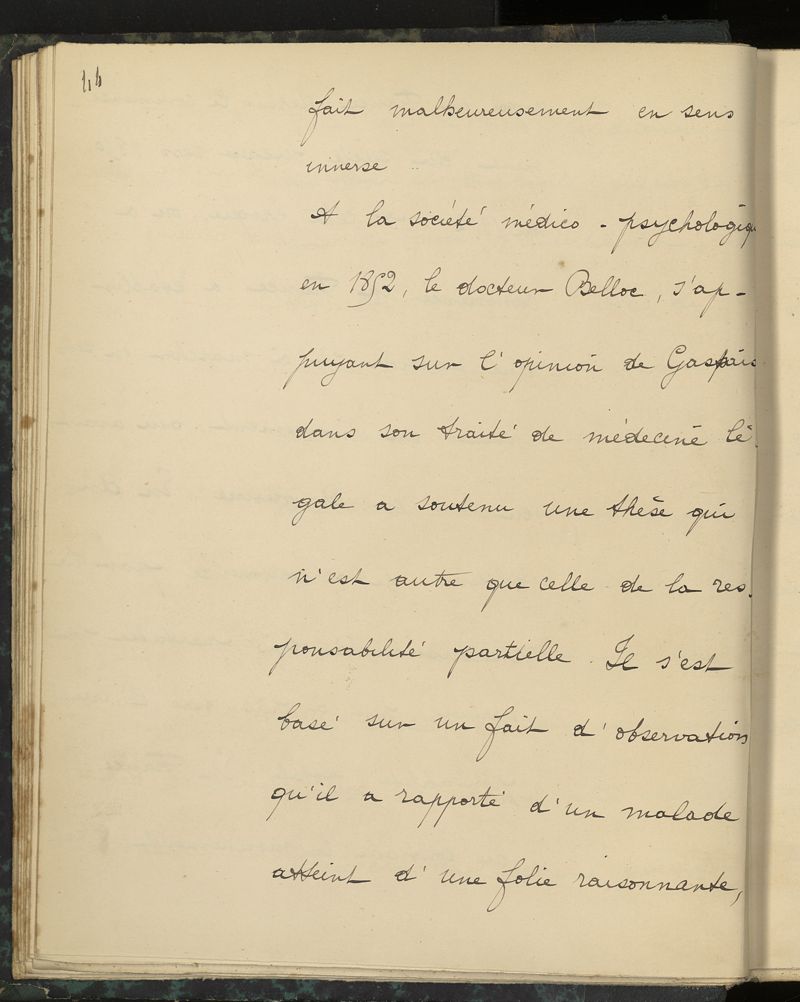 44
fait malheureusement en sens
inverse
A la société médico - psychologiqu
en 1852, le docteur Belloc, s'ap-
puyant sur l'opinion de
dans son traité de médecine lé-
gale a soutenu une thèse qui
n'est autre que celle de la res-
ponsabilité partielle. Il s'est
basé sur un fait d'observation
qu'il a rapporté d'un malade
atteint d'une folie raisonnante,